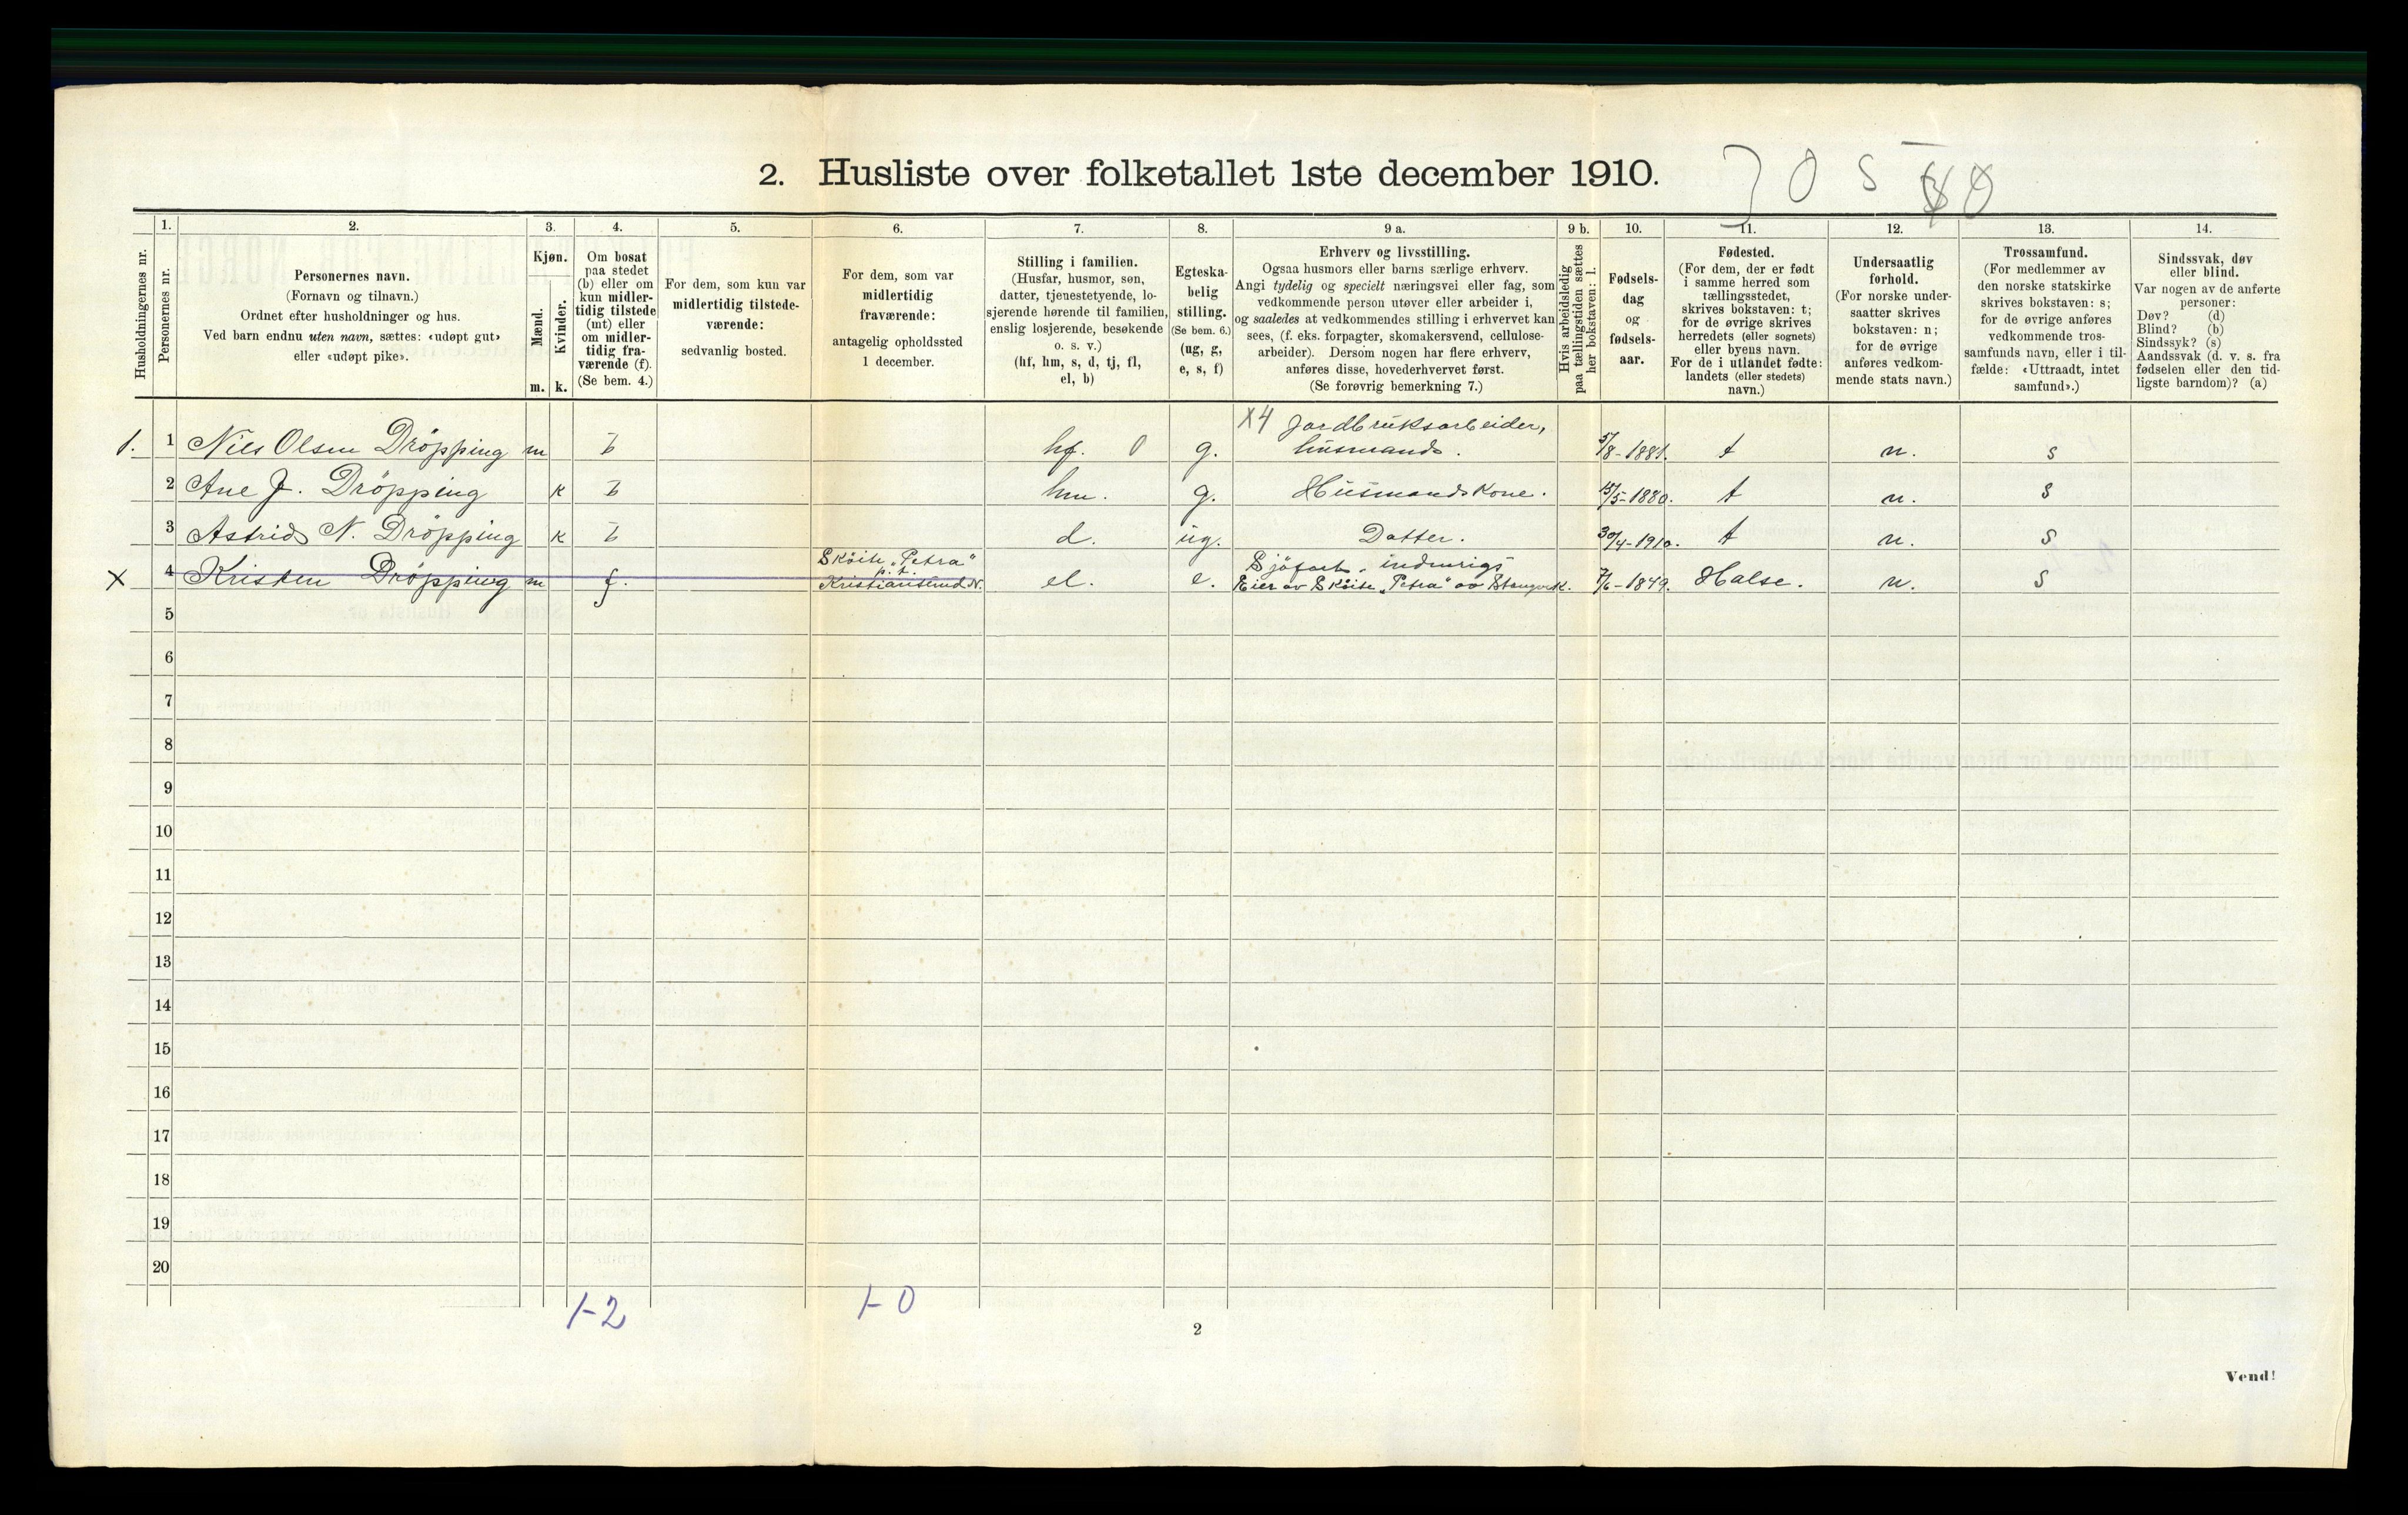 2. Husliste over folketallet 1ste december 1910.
Husholdningernes nr.
1.
Personernes nr.
2.
Personernes navn.
(Fornavn og tilnavn.)
Ordnet efter husholdninger og hus.
Ved barn endnu uten navn, sættes: «udøpt gut»
eller «udøpt pike».
3.
Kjøn.
Mænd.
Kvinder.
m. k.
4.
Om bosat
paa stedet
(b) eller om
kun midler-
tidig tilstede
(mt) eller
om midler-
tidig fra-
værende (f).
(Se bem. 4.)
5.
For dem, som kun var
midlertidig tilstede-
værende:
sedvanlig bosted.
6.
For dem, som var
midlertidig
fraværende:
antagelig opholdssted
1 december.
7.
Stilling i familien.
(Husfar, husmor, søn,
datter, tjenestetyende, lo-
sjerende hørende til familien,
enslig losjerende, besøkende
o. s. v.)
(hf, hm, s, d, tj, fl,
el, b)
8.
Egteska-
belig
stilling.
(Se bem. 6.)
(ug, g,
e, s, f)
9 a.
Erhverv og livsstilling.
Ogsaa husmors eller barns særlige erhverv.
Angi tydelig og specielt næringsvei eller fag, som
vedkommende person utøver eller arbeider i,
og saaledes at vedkommendes stilling i erhvervet kan
sees, (f. eks. forpagter, skomakersvend, cellulose-
arbeider). Dersom nogen har flere erhverv,
anføres disse, hovederhvervet først.
(Se forøvrig bemerkning 7.)
9 b.
Hvis arbeidsledig
paa tællingstiden sættes
her bokstaven: l.
10.
Fødsels-
dag
og
fødsels-
aar.
11.
Fødested.
(For dem, der er født
i samme herred som
tællingsstedet,
skrives bokstaven: t;
for de øvrige skrives
herredets (eller sognets)
eller byens navn.
For de i utlandet fødte:
landets (eller stedets)
navn.)
12.
Undersaatlig
forhold.
(For norske under-
saatter skrives
bokstaven: n;
for de øvrige
anføres vedkom-
mende stats navn.)
13.
Trossamfund.
(For medlemmer av
den norske statskirke
skrives bokstaven: s;
for de øvrige anføres
vedkommende tros-
samfunds navn, eller i til-
fælde: «Uttraadt, intet
samfund».)
14.
Sindssvak, døv
eller blind.
Var nogen av de anførte
personer:
Døv? (d)
Blind? (b)
Sindssyk? (s)
Aandssvak (d. v. s. fra
fødselen eller den tid-
ligste barndom)? (a)
X4 Jordbruksarbeider,
1. 1 Nils Olsen Dröpping m b hf. 0 g. husmands. 5/8-1881. t n. s
2 Ane J. Dröpping k b hm. g. Husmandskone. 15/5-1880. t n. s
3 Astrid N. Dröpping k b d. ug. Datter. 30/4-1910. t n. s
Sköite "Petra" Sjöfart, indenrigs
p.t.
X 4 Kristen Dröpping m f. Kristiansund N. el. e. Eier av Sköite "Petra" av Stangvik. 7/6-1849. Halse. n. s
5
6
7
8
9
10
11
12
13
14
15
16
17
18
19
20
1-2 1-0
2
Vend!